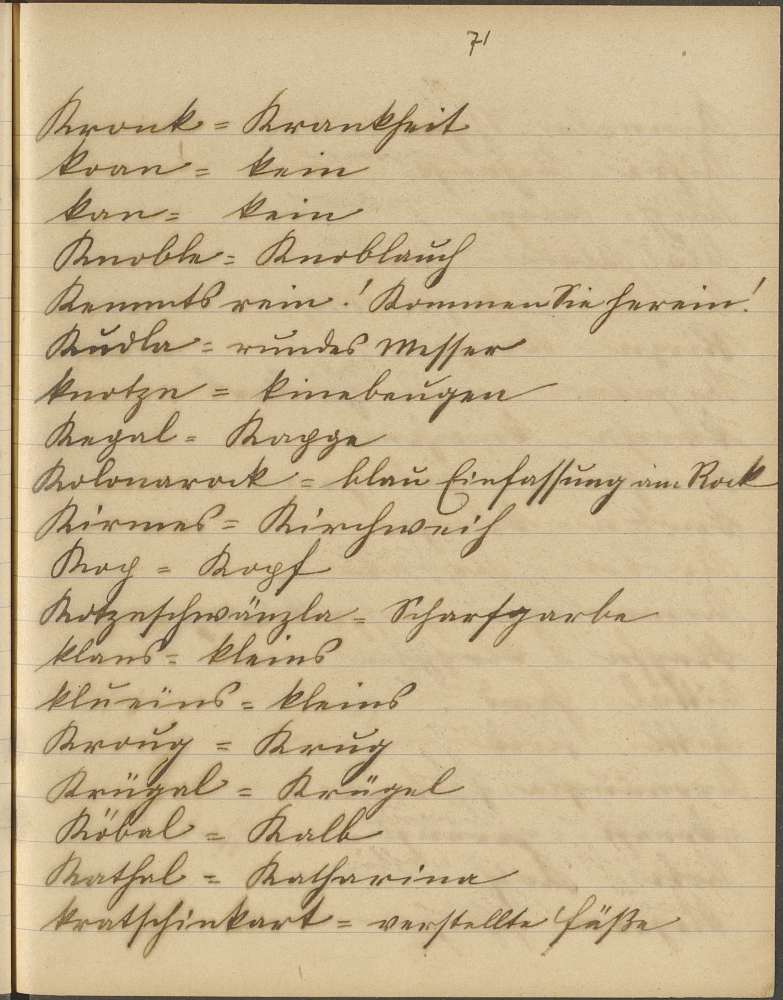 71
Kronk = Krankheit
koan = kein
kan = kein
Knoble = Knoblauch
Kemmts rein! Kommen Sie herein!
Kudla = rundes Messer
knotzn = kniebeugen
Kegal = Kappe
Kolonarock = blau Einfassung am Rock
Kirmes = Kirchweih
Kop = Kopf
Kotzeschwänzla = Scharfgarbe
klans = kleins
klueins = kleins
Kroug = Krug
Krügal = Krügel
Köbal = Kalb
Kathal = Katharina
kratschinkart = verstellte Füße